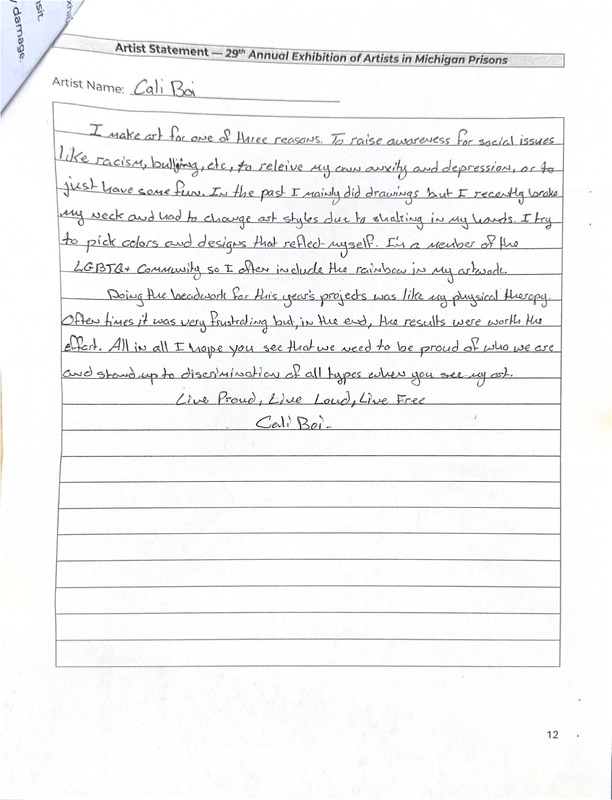 sit.
damage.
Artist Statement — 29th Annual Exhibition of Artists in Michigan Prisons
Artist Name: Cali Boi
I make art for one of three reasons. To raise awareness for social issues
like racism, bullying, etc, to releive my own anxity and depression, or to
just have some fun. In the past I mainly did drawings but I recently broke
my neck and had to change art styles due to shaking in my hands. I try
to pick colors and designs that reflect myself. I'm a member of the
LGBTQ+ Community so I often include the rainbow in my artwork.
Doing the beadwork for this year's projects was like my physical therapy.
Often times it was very frustrating but, in the end, the results were worth the
effort. All in all I hope you see that we need to be proud of who we are
and stand up to discrimination of all types when you see my art.
Live Proud, Live Loud, Live Free
Cali Boi-
12